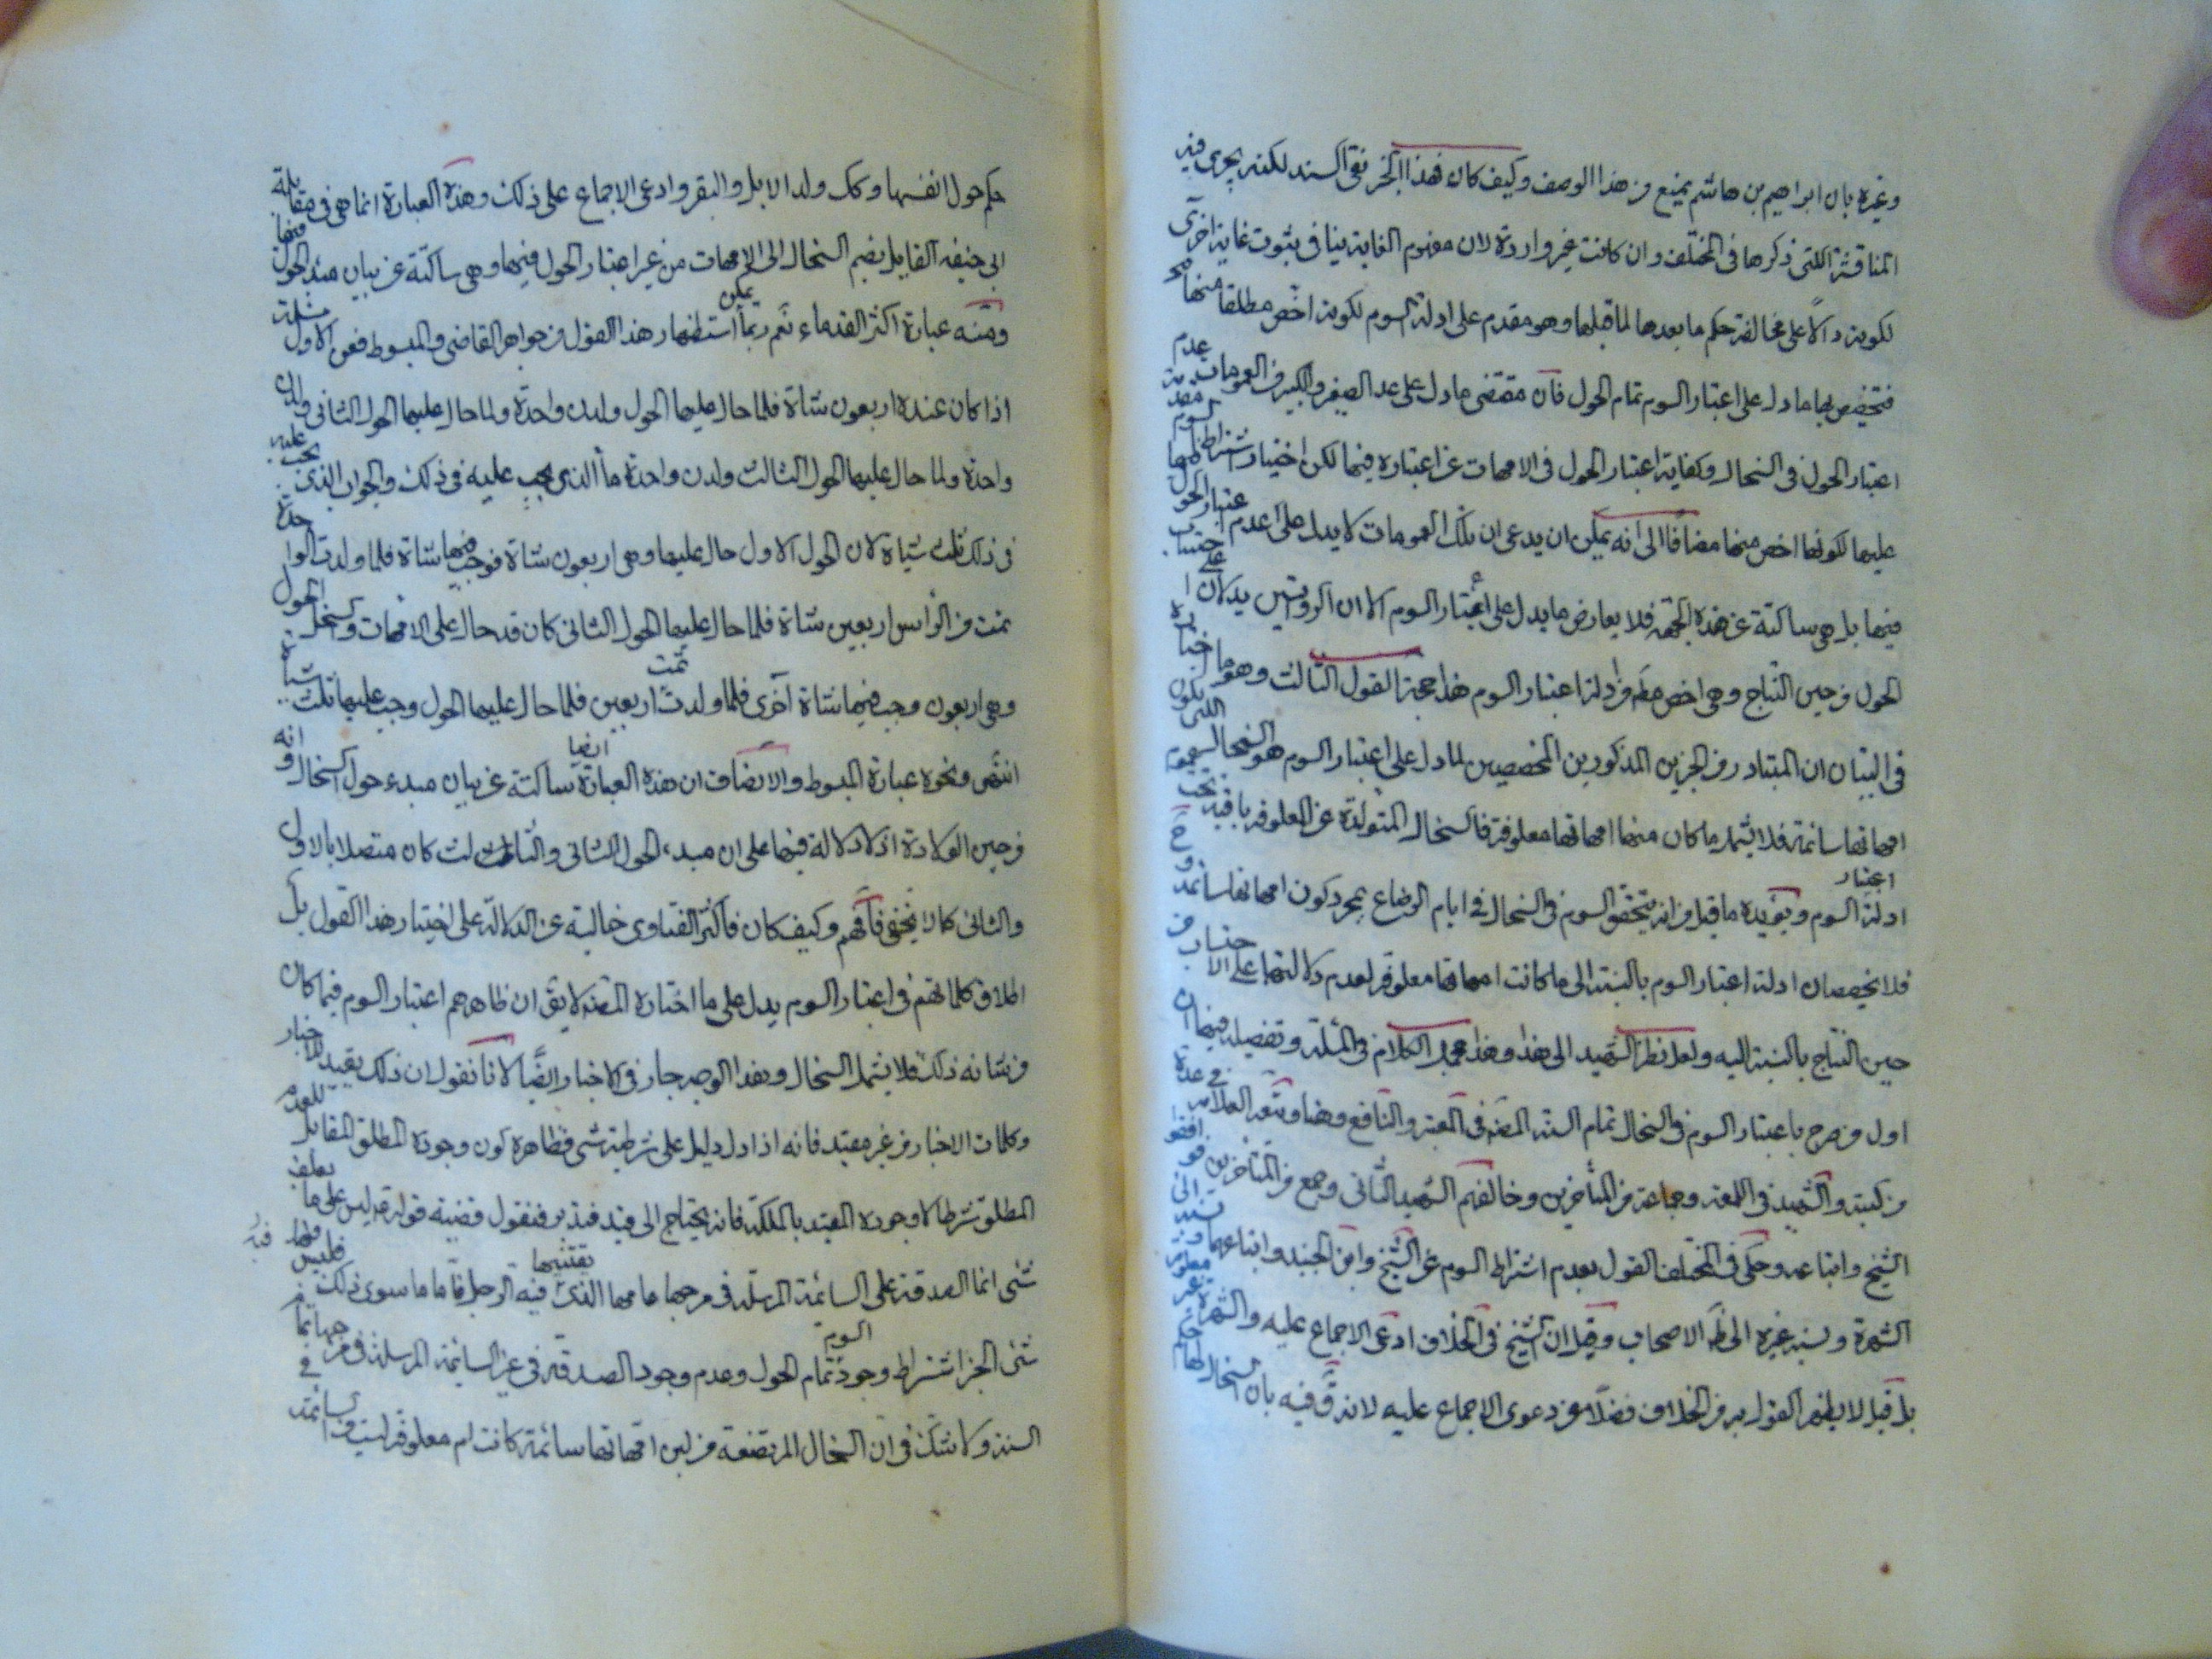 وغيره بان ابراهيم بن هاشم يمنع من هذا الوصف وكيف كان فهذا الخبر نقى السند لكنه يجرى فيه
المناقشة اللتى ذكرها فى المختلف وان كانت غير واردة لان مفهوم الغاية ينافى ثبوت غاية اخرى
لكونه دالا على مخالفة حكم ما بعدها لما قبلها وهو مقدم على ادلة السوم لكونه اخص مطلقا منها
فتخصص بها ما دل على اعتبار السوم تمام الحول فان مقتضى ما دل على عد الصغير والكبير من العمومات عدم
اعتبار الحول فى السخال وكفاية اعتبار الحول فى الامهات عن اعتباره فيها لكن اخبار اشتراط السوم مقدمة
عليها لكونها اخص منها مضافا الى انه يمكن ان يدعى ان تلك العمومات لا يدل على عدم اعتبار الحول
فيها بل هى ساكتة عن هذه الجهة فلا يعارض ما يدل على اعتبار السوم الا ان الروايتين يدلان على احتساب
الحول من حين النتاج وهى اخص مط من ادلة اعتبار السوم هذا حجة القول الثالث وهو ما اختاره
فى البيان ان المتبادر من الخبرين المذكورين المخصصين لما دل على اعتبار السوم هو السخال اللتى يكون
امهاتها سائمة فلا يشمل ما كان منها امهاتها معلوفة فالسخال المتولدة عن المعلوفة باقية تحت عموم
ادلة اعتبار السوم ويؤيده ما قيل من انه يتحقق السوم فى السخال فى ايام الرضاع بمجرد كون امهاتها سائمة وح
فلا يخصصان ادلة اعتبار السوم بالنسبة الى ما كانت امهاتها معلوفة لعدم دلالتهما على الاحتساب من
حين النتاج بالنسبة اليه ولعل نظر الشهيد الى هذا وهذا مجمل الكلام فى المسئلة وتفصيله فيها ان
اول من صرح باعتبار السوم فى السخال تمام السنة المصنف فى المعتبر والنافع وهنا وتبعه العلامة فى عدة
من كتبه والشهيد فى اللمعة وجماعة من المتأخرين وخالفهم الشهيد الثانى وجمع من المتاخرين
الشيخ واتباعه وحكى فى المختلف القول بعدم اشتراط السوم عن الشيخ وابن الجنيد واتباعهما
الشهرة ونسبه غيره الى ظ الاصحاب وقيل ان الشيخ فى الخلاف ادعى الاجماع عليه والشهرة
بل قيل لا يظهر القول به من الخلاف فضلا من دعوى الاجماع عليه لانه ق فيه بان السخال لها حكم
حكم حول انفسها وكك ولد الابل والبقر وادعى الاجماع على ذلك وهذه العبارة انما هى فى مقابلة
ابى حنيفه القايل بضم السخال الى الامهات من غير اعتبار الحول فيها وهى ساكتة عن بيان مبدء الحول فيها
ومثله عبارة اكثر القدماء نعم ربما يمكن استظهار هذا القول من جواهر القاضى والمبسوط ففى الاول مسئلة
اذا كان عنده اربعون شاة فلما حال عليها الحول ولدت واحدة ولما حال عليها الحول الثانى ولدت
واحدة ولما حال عليها الحول الثالث ولدت واحدة ما الذى يجب عليه فى ذلك والجواب الذى يجب عليه
فى ذلك ثلث شياة لان الحول الاول حال عليها وهى اربعون شاة فوجب فيها شاة فلما ولدت الواحدة
تمت من الراس اربعين شاة فلما حال عليها الحول الثانى كان قد حال على الامهات والسخل الحول
وهى اربعون وجب فيها شاة اخرى فلما ولدت تمت اربعين فلما حال عليها الحول وجب عليها ثلث شياة
انتهى ونحوه عبارة المبسوط والانصاف ان هذه العبارة ايضا ساكتة عن بيان مبدء حول السخال وانه
من حين الولادة اذ لا دلالة فيها على ان مبدء الحول الثانى والثالث كان متصلا بالاول
والثانى كما لا يخفى فافهم وكيف كان فاكثر الفتاوى خالية عن الدلالة على اختيار هذا القول بل
اطلاق كلماتهم فى اعتبار السوم يدل على ما اختاره المصنف لا يق ان ظاهرهم اعتبار السوم فيما كان
من شانه ذلك فلا يشمل السخال وبهذا الوجه جار فى الاخبار ايضا لانا نقول ان ذلك تقييد للاخبار
وكلمات الاخبار من غير مقيد فانه اذا دل دليل على شرطية شئ فظاهره كون وجوده المطلق المقابل للعدم
المطلق شرطا لا وجوده المقيد بالملكة فانه يحتاج الى قيد فتدبر فنقول قضية قوله ع ليس على ما يعلف
شئ انما الصدقة على السائمة المرسلة فى مرجها عامها الذى يقتنيها فيه الرجل فاما ما سوى ذلك فليس فيها
شئ الخبر اشتراط وجود السوم تمام الحول وعدم وجود الصدقة فى غير السائمة المرسلة فى مرجها تمام
السنة ولا شك فى ان السخال المرتضعة من لبن امهاتها سائمة كانت ام معلوفة ليست سائمة